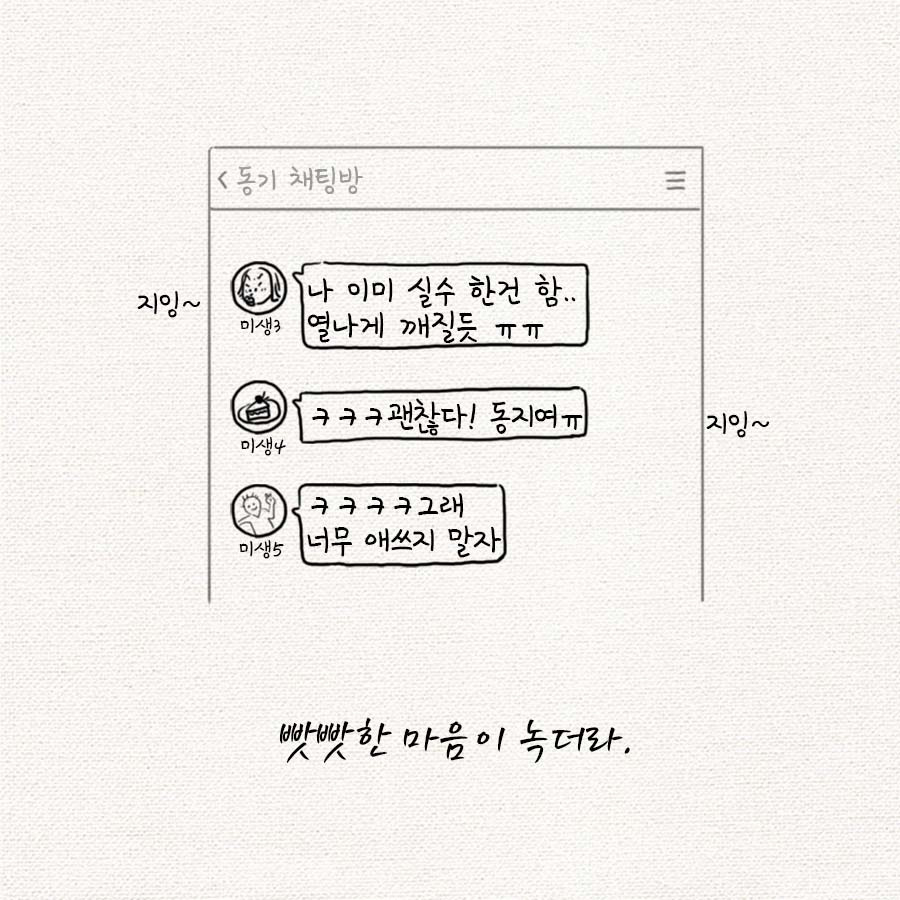 < 동기 채팅방
지잉~
미생3
나 이미 실수 한건 함..
열나게 깨질듯 ㅠㅠ
미생4
ㅋㅋㅋ괜찮다! 동지여ㅠ
지잉~
미생5
ㅋㅋㅋㅋ그래
너무 애쓰지 말자
빳빳한 마음이 녹더라.